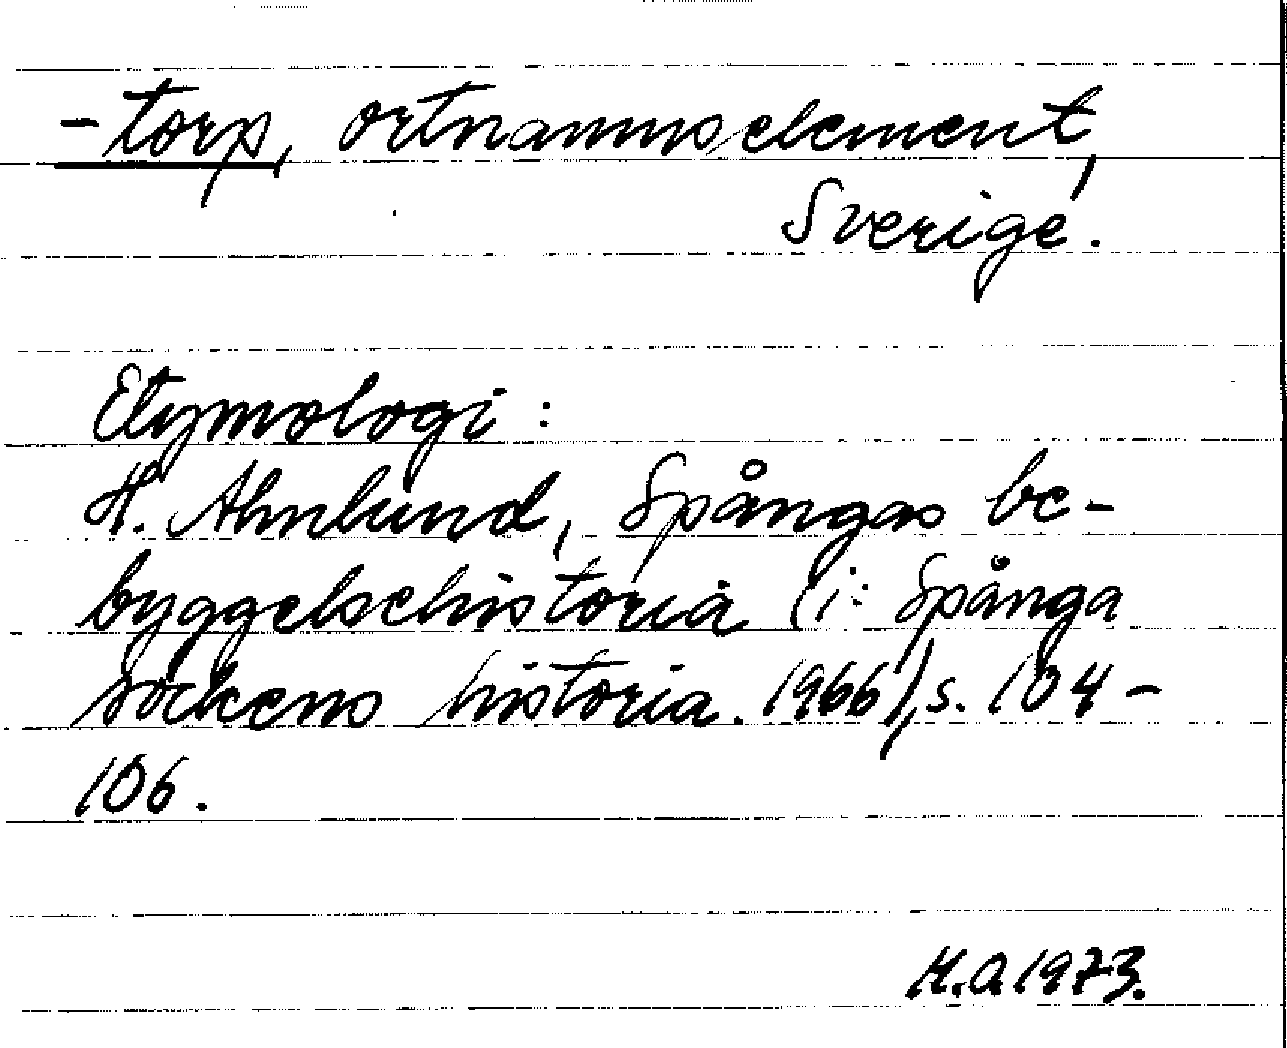 -torp, ortnamnselement,
Sverige.
Etymologi:
H. Ahnlund, Spångas be-
byggelsehistoria (i: Spånga
sockens historia. 1966), s. 104-
106.
H.A. 1973.